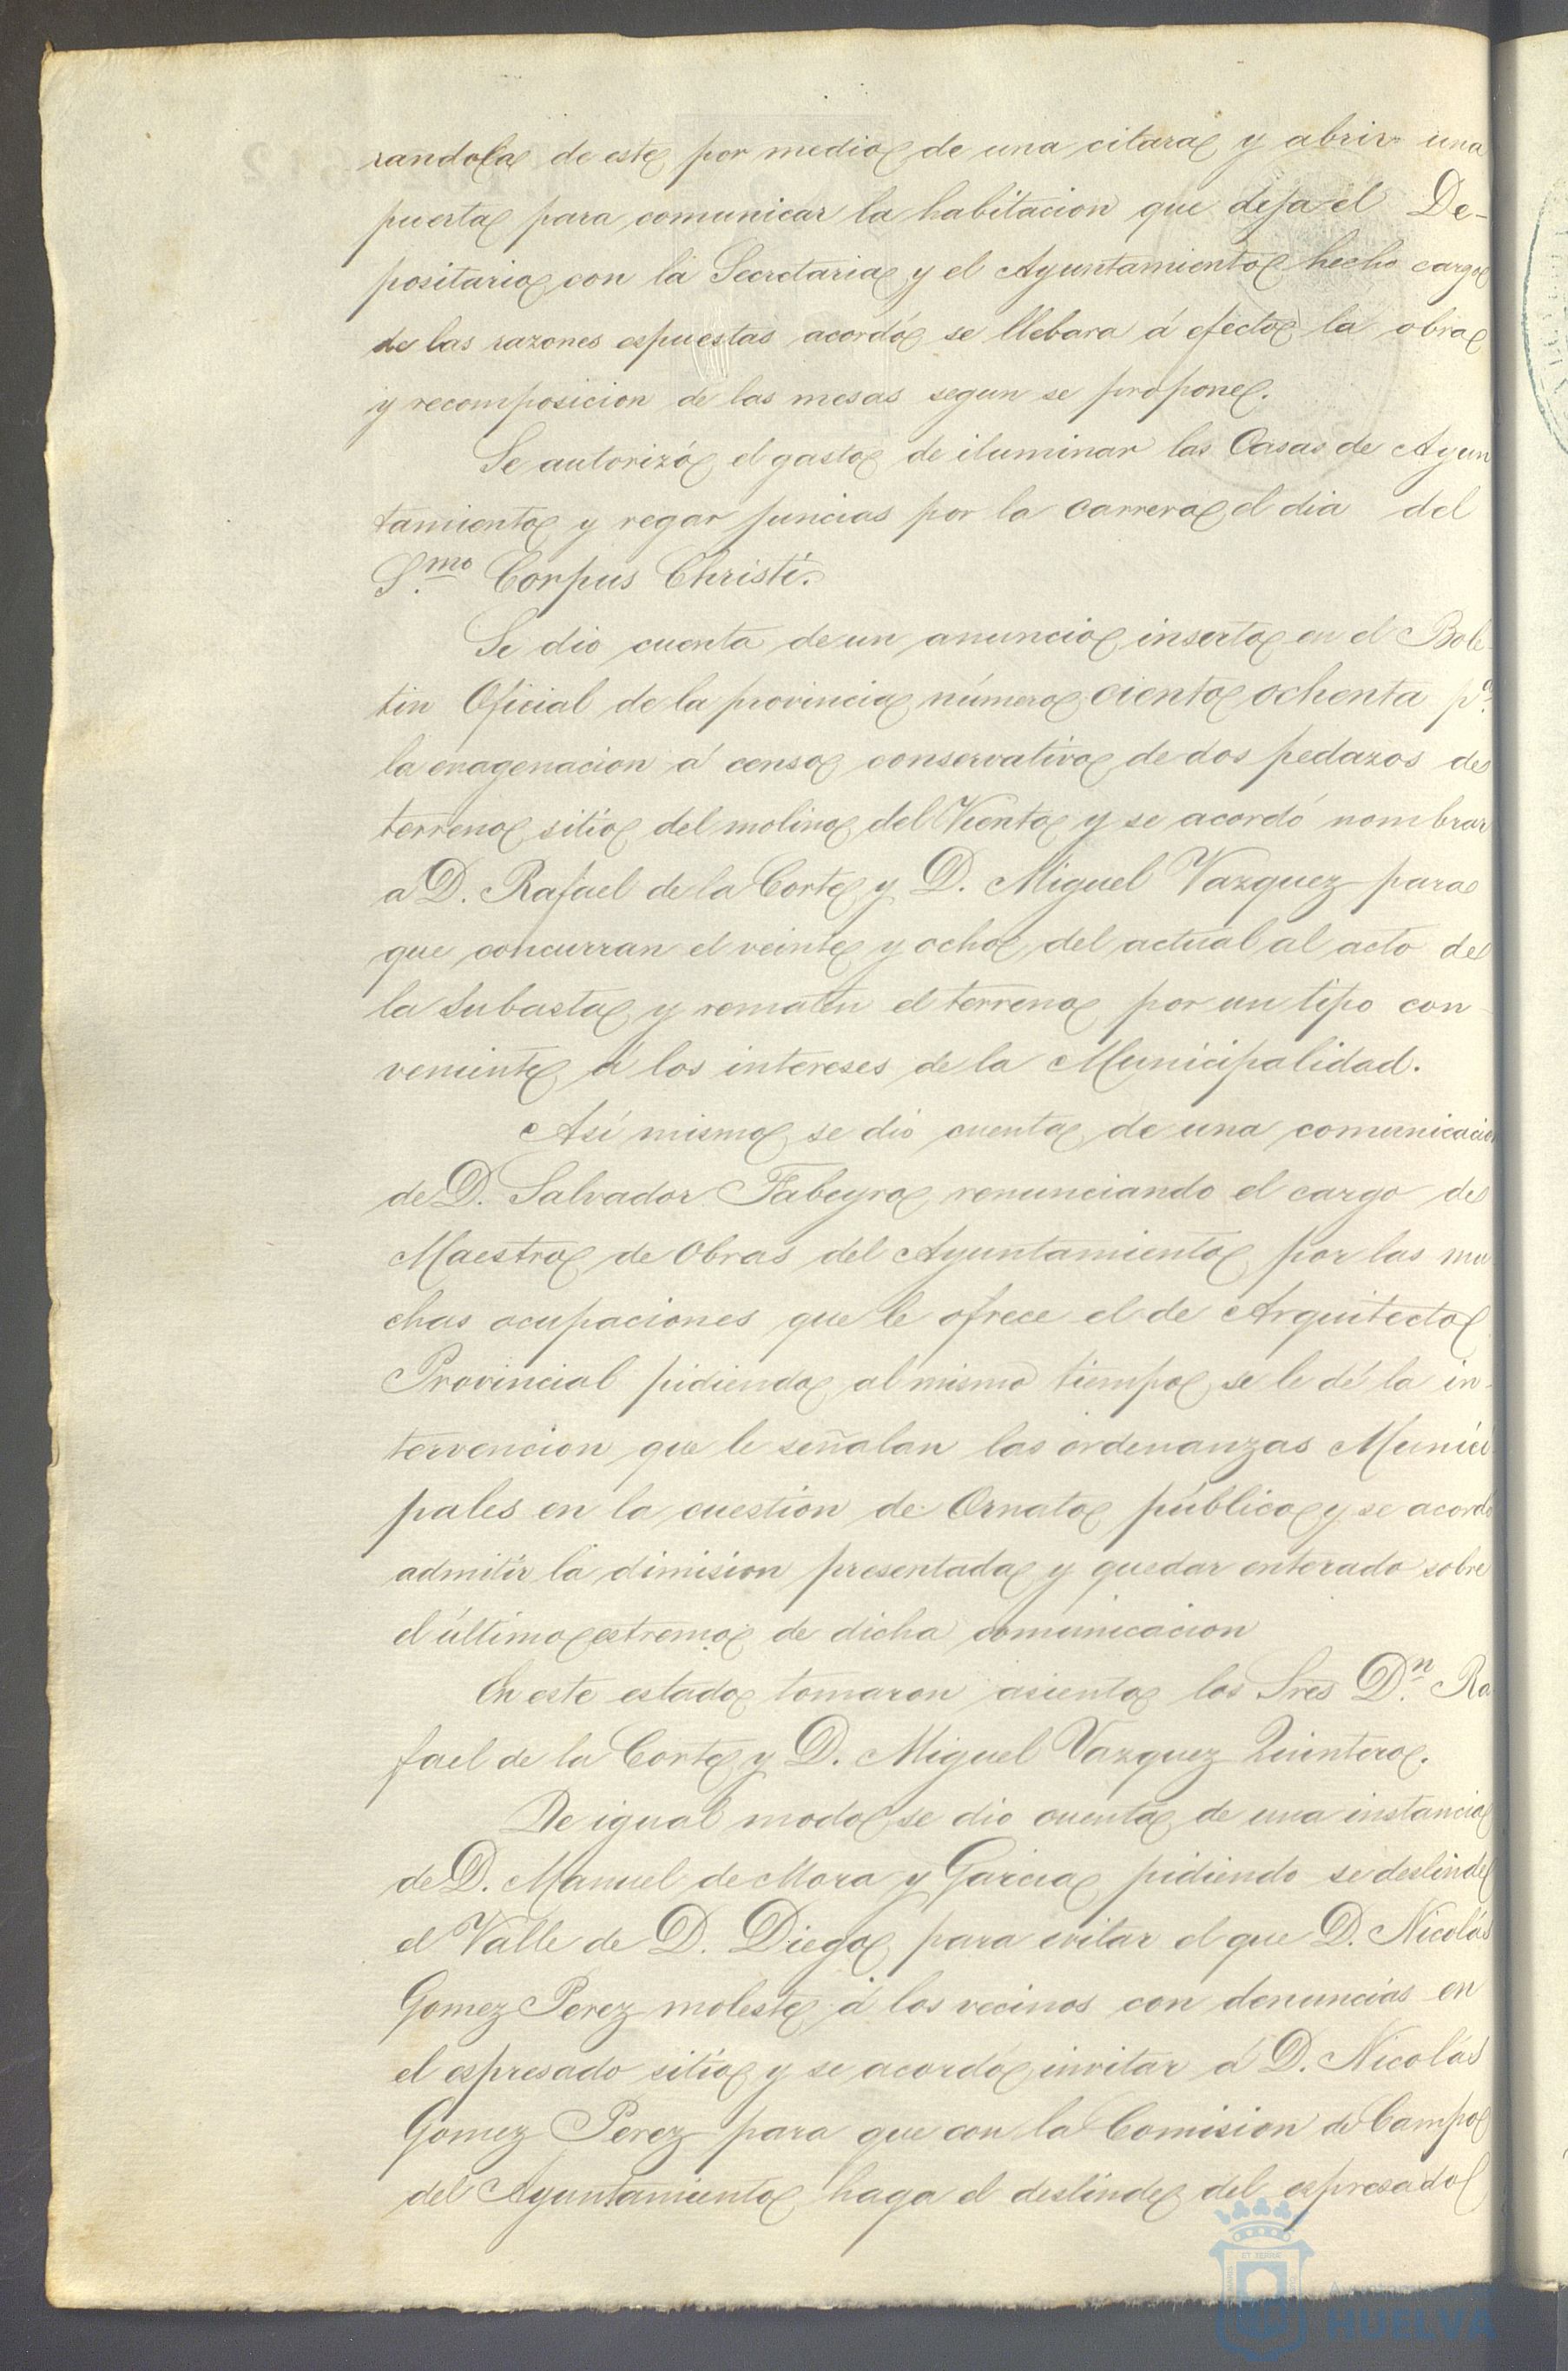 randola de este por medio de una citara y abrir una
puerta para comunicar la habitacion que deja el De-
positario con la Secretaria y el Ayuntamiento hecho cargo
de las razones espuestas acordó se llebara á efecto la obra
y recomposicion de las mesas segun se propone.
Se autorizó el gasto de iluminar las Casas de Ayun
tamiento y regar juncias por la carrera el dia del
S.mo Corpus Christi.
Se dio cuenta de un anuncio inserto en el Bole
tin Oficial de la provincia número ciento ochenta p.a
la enagenacion á censo conservativo de dos pedazos de
terreno sitio del molino del Viento y se acordó nombrar
a D. Rafael de la Corte y D. Miguel Vazquez para
que concurran el veinte y ocho del actual al acto de
la Subasta y rematen el terreno por un tipo con
veniente á los intereses de la Municipalidad.
Asi mismo se dió cuenta de una comunicacion
de D. Salvador Fabeyro renunciando el cargo de
Maestro de Obras del Ayuntamiento por las mu
chas ocupaciones que le ofrece el de Arquitecto
Provincial pidiendo al mismo tiempo se le dé la in-
tervencion que le señalan las ordenanzas Munici
pales en la cuestion de Ornato público y se acordó
admitir la dimision presentada y quedar enterado sobre
el último estremo de dicha comunicacion
En este estado tomaron asiento los Sres D.n Ra
fael de la Corte y D. Miguel Vazquez Quintero.
De igual modo se dio cuenta de una instancia
de D. Manuel de Mora y Garcia pidiendo se deslinde
el Valle de D. Diego para evitar el que D. Nicolás
Gomez Perez moleste á los vecinos con denuncias en
el espresado sitio y se acordó invitar á D. Nicolás
Gomez Perez para que con la Comision de Campo
del Ayuntamiento haga el deslinde del espresado
HUELVA